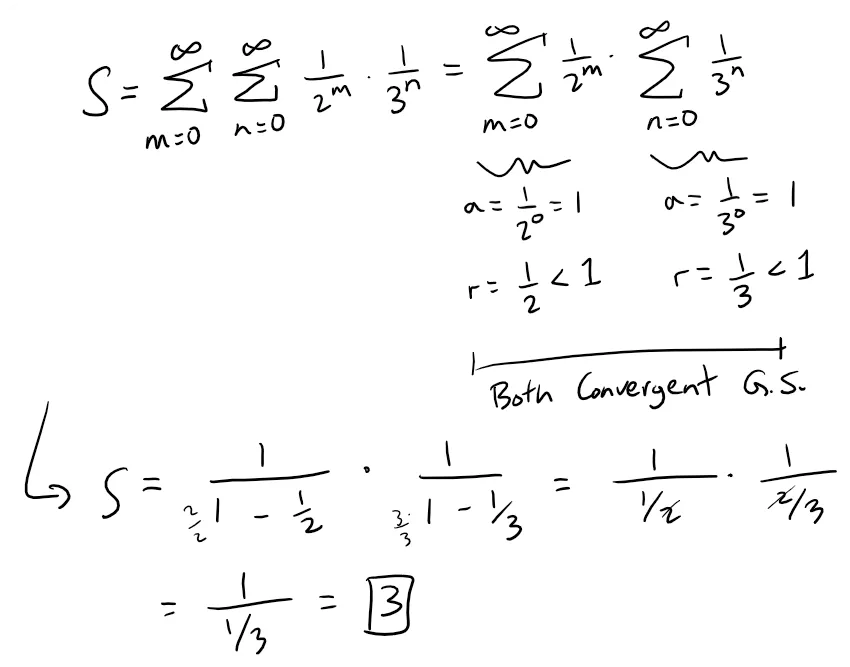 S = ∑_{m=0}^{∞} ∑_{n=0}^{∞} 1/2^m · 1/3^n = ∑_{m=0}^{∞} 1/2^m · ∑_{n=0}^{∞} 1/3^n
a = 1/2^0 = 1    a = 1/3^0 = 1
r = 1/2 < 1    r = 1/3 < 1
Both Convergent G.S.
↳ S = 1/(2/2 1 - 1/2) · 1/(3/3· 1 - 1/3) = 1/(1/2) · 1/(2/3)
= 1/(1/3) = 3